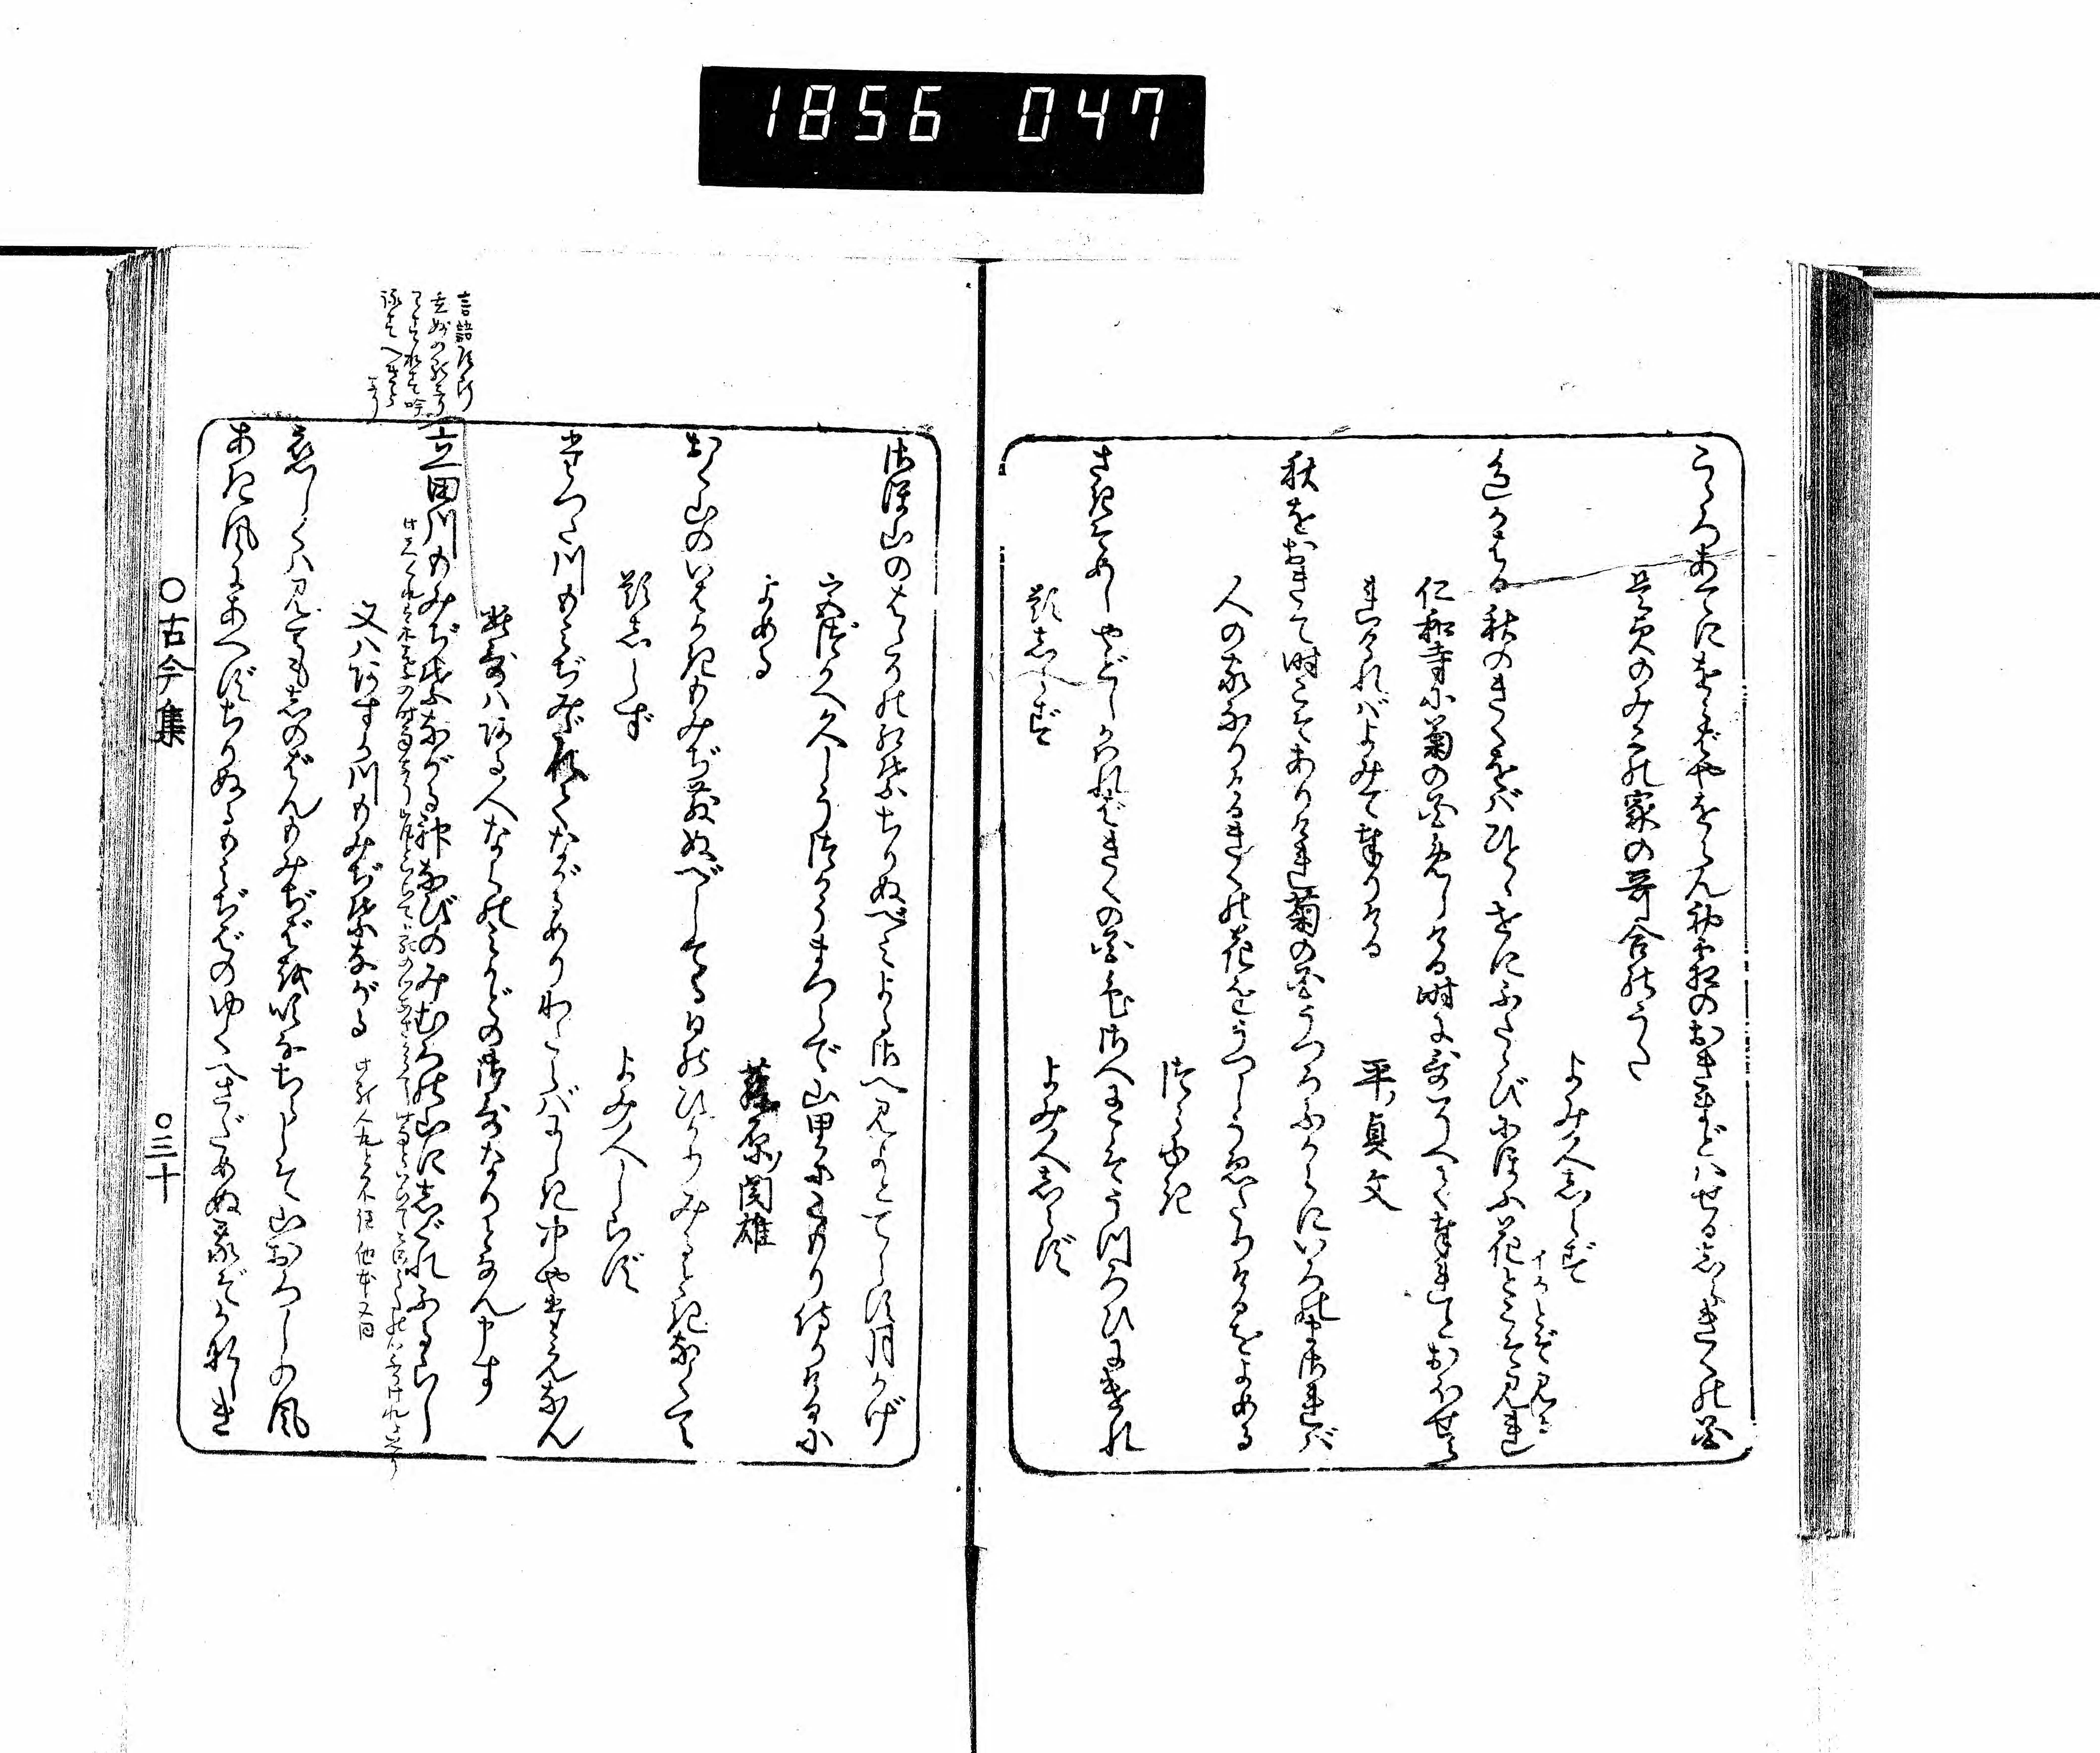 1856 047
こゝろあてにをらばやをらん初霜のおきまどはせるしらきくの花
是貞のみこの家の哥合のうた
よみ人しらず
色かはる秋のきくをばひとゝせにふたゝびにほふ花とこそ見れ
仁和寺に菊の花めしける時に哥そへて奉れとおほせら
れければよみて奉りける
平貞文
秋をおきて時こそありけれ菊の花うつろふからにいろのまされば
人の家なりけるきくの花をうつしうゑたりけるをよめる
つらゆき
さきそめしやどしかはればきくの花色さへにこそうつろひにけれ
題しらず
よみ人しらず
さほ山のはゝその紅葉ちりぬべみよるさへ見よとてらす月かげ
宮づかへ久しうつかうまつらで山里にこもり侍りけるに
よめる
藤原関雄
おく山のいはがきもみぢ散ぬべしてる日のひかりみる時なくて
題しらず
よみ人しらず
たつた川もみぢみだれてながるめりわたらばにしき中やたえなん
此哥はある人ならのみかどの御哥なりとなん申す
立田川もみぢ葉ながる神なびのみむろの山にしぐれふるらし
又はあすか川もみぢ葉ながる
恋しくは見てもしのばんもみぢばを吹なちらしそ山おろしの風
あき風にあへずちりぬるもみぢばのゆくへさだめぬ我ぞかなしき
○古今集
○三十